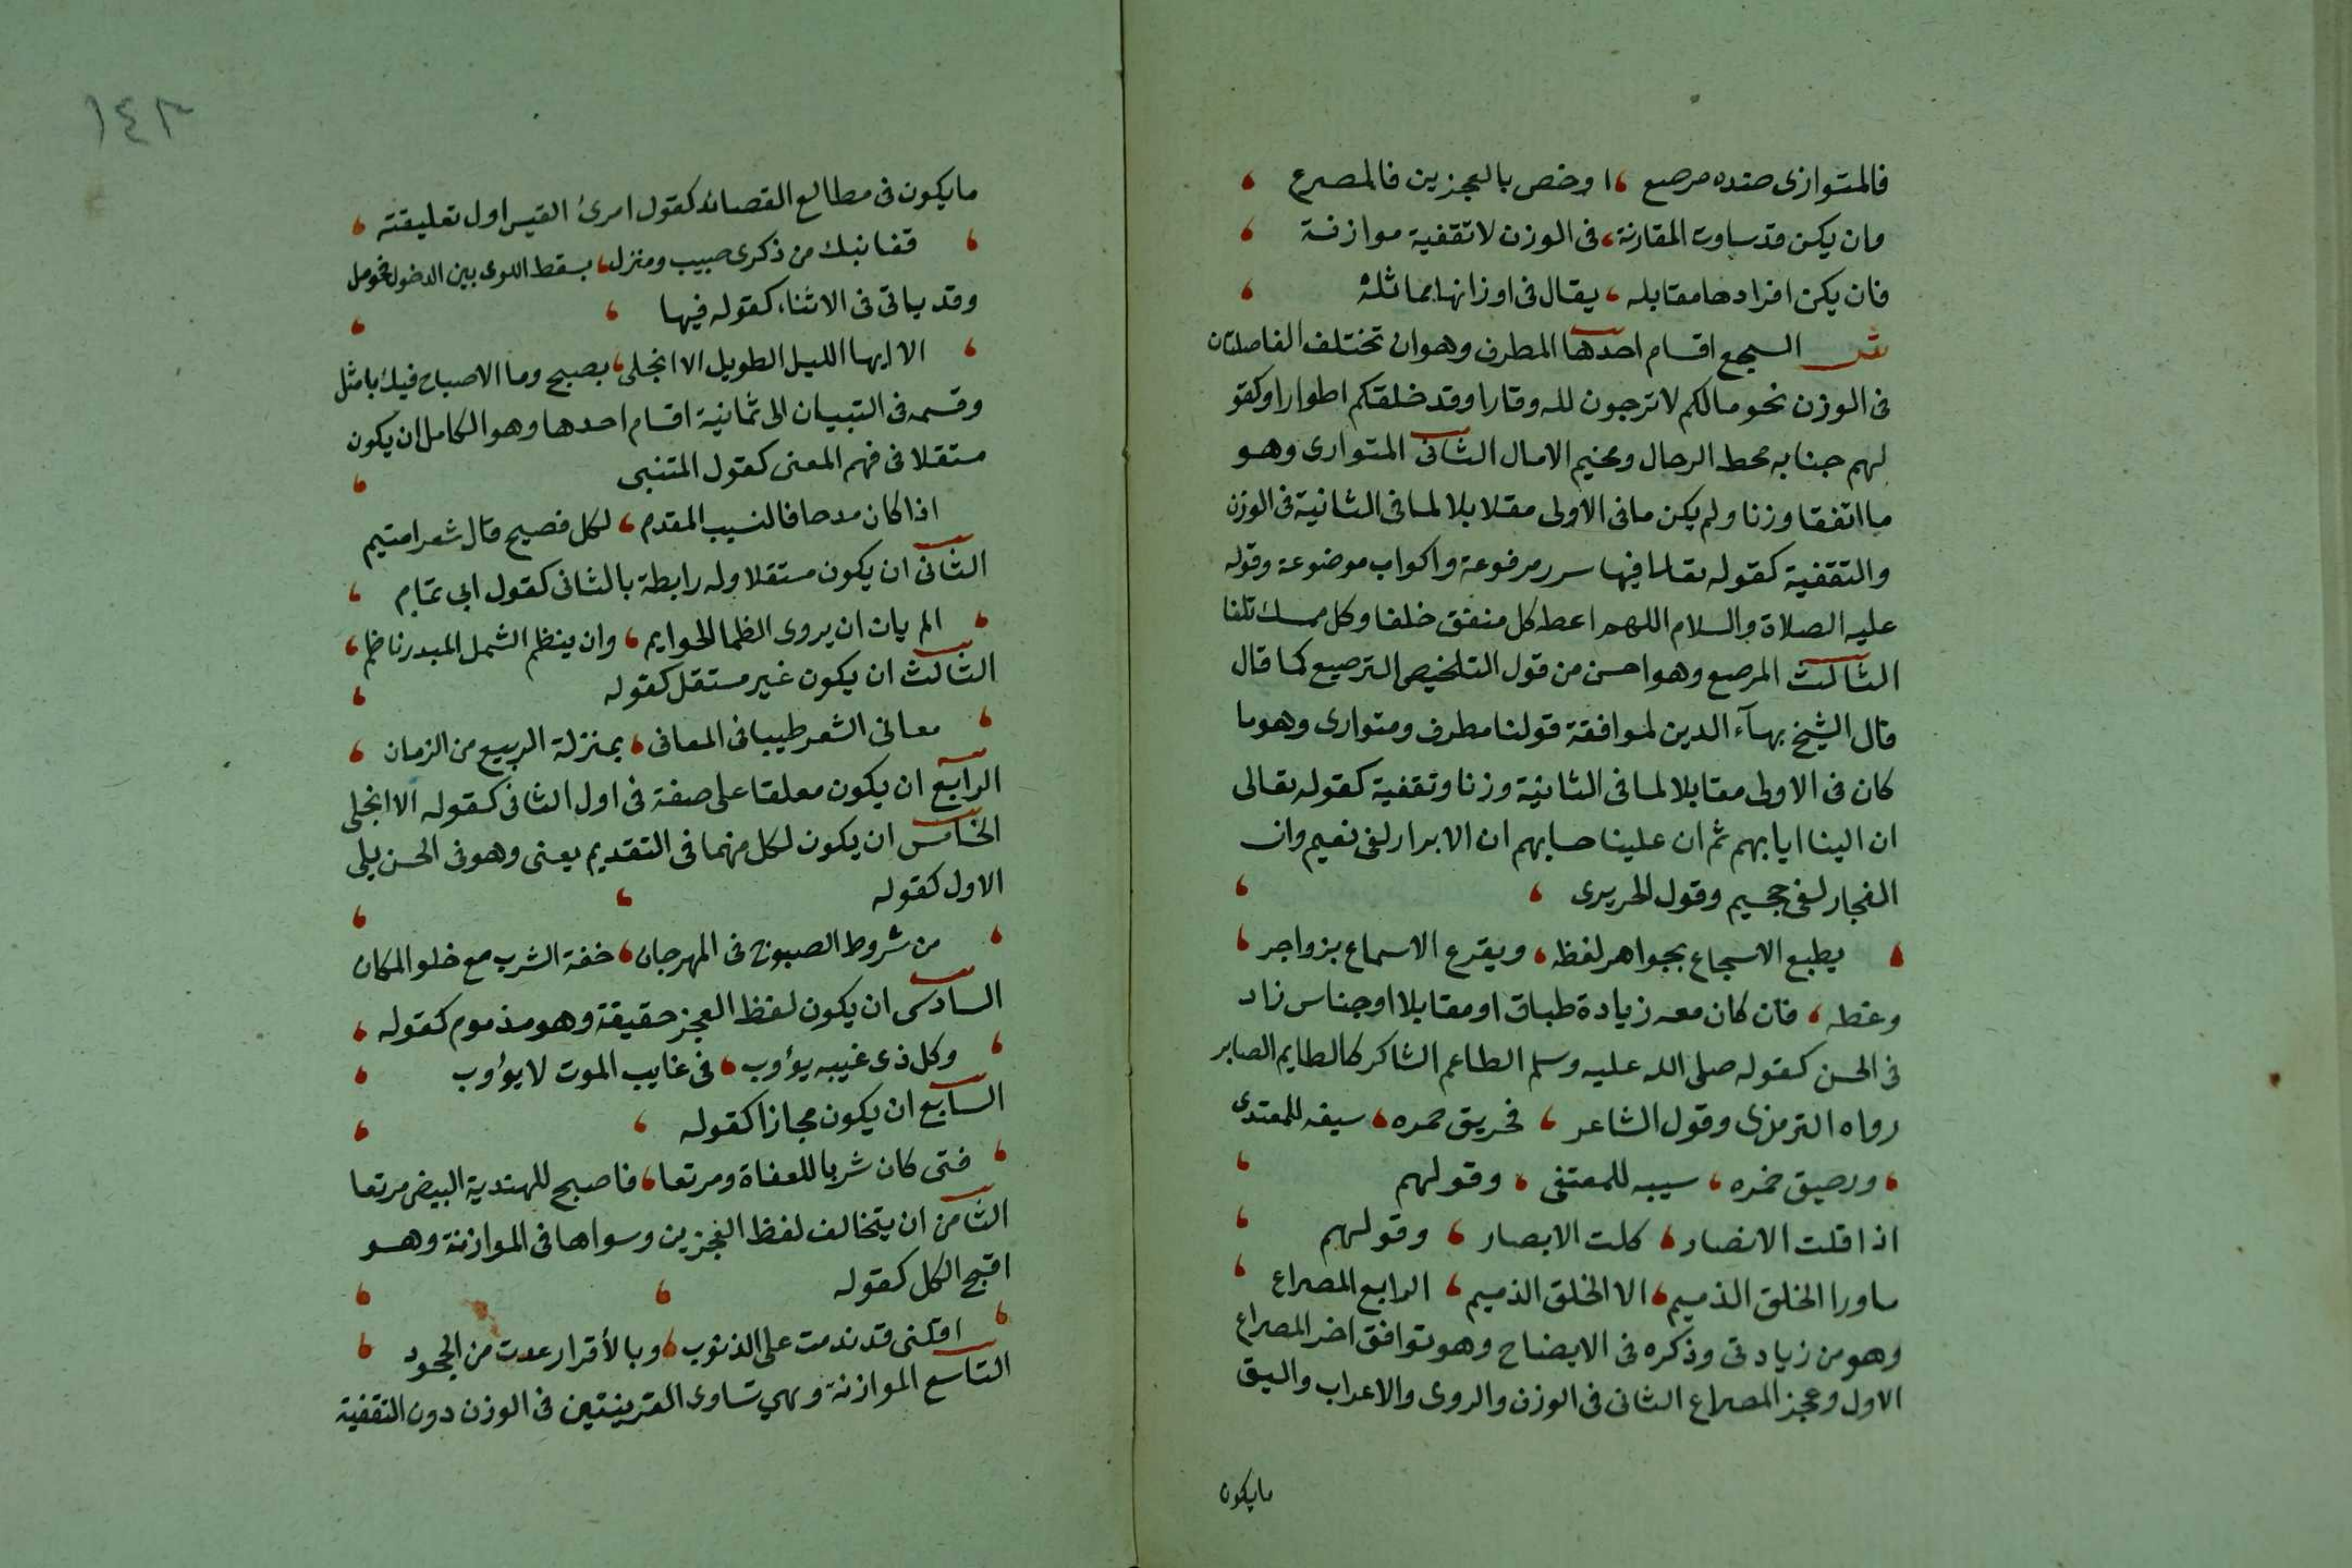 فالمتوازى ضده مرصع ، او خص بالعجزين فالمصرع ،
وان يكن قد ساوت المقارنة ، فى الوزن لا تقفية موازنة ،
فان يكن افرادها مقابله ، يقال فى اوزانها مماثله ،
السجع اقسام احدها المطرف وهو ان تختلف الفاصلتان
فى الوزن نحو مالكم لا ترجون لله وقارا وقد خلقكم اطوارا وكقو
لهم جنابه محط الرحال ومخيم الامال الثانى المتوازى وهو
ما اتفقا وزنا ولم يكن ما فى الاولى مقابلا لما فى الثانية فى الوزن
والتقفية كقوله تعالى فيها سرر مرفوعة واكواب موضوعة وقوله
عليه الصلاة والسلام اللهم اعط كل منفق خلفا وكل ممسك تلفا
الثالث المرصع وهو احسن من قول التلخيص الترصيع كما قال
قال الشيخ بهآء الدين لموافقة قولنا مطرف ومتوازى وهو ما
كان فى الاولى مقابلا لما فى الثانية وزنا وتقفية كقوله تعالى
ان الينا ايابهم ثم ان علينا حسابهم ان الابرار لفى نعيم وان
الفجار لفى جحيم وقول الحريرى ،
، يطبع الاسجاع بجواهر لفظه ، ويقرع الاسماع بزواجر ،
وعظه ، فان كان معه زيادة طباق او مقابلا او جناس زاد
فى الحسن كقوله صلى الله عليه وسلم الطاعم الشاكر كالطايم الصابر
رواه الترمذى وقول الشاعر ، فحريق جمره ، سيفه للمعتدى
، ورحيق خمره ، سيبه للمعتفى ، وقولهم ،
اذا قلت الانصار ، كلت الابصار ، وقولهم ،
ماورا الخلق الذميم ، الا الخلق الذميم ، الرابع المصراع ،
وهو من زيادتى وذكره فى الايضاح وهو توافق اخر المصراع
الاول وعجز المصراع الثانى فى الوزن والروى والاعراب واليق
مايكون
١٤٣
مايكون فى مطالع القصائد كقول امرئ القيس اول تعليقته ،
، قفا نبك من ذكرى حبيب ومنزل ، بسقط اللوى بين الدخول فحومل
وقد ياتى فى الاثناء كقوله فيها ،
، الا ايها الليل الطويل الا انجلى ، بصبح وما الاصباح فيك بامثل
وقسمه فى التبيان الى ثمانية اقسام احدها وهو الكامل ان يكون
مستقلا فى فهم المعنى كقول المتنبى ،
اذا كان مدحا فالنسيب المقدم ، لكل فصيح قال شعرا متيم
الثانى ان يكون مستقلا وله رابطة بالثانى كقول ابى تمام ،
، الم يان ان يروى الظما الحوايم ، وان ينظم الشمل المبدر ناظم ،
الثالث ان يكون غير مستقل كقوله ،
، معانى الشعر طيبا فى المعانى ، بمنزلة الربيع من الزمان ،
الرابع ان يكون معلقا على صفة فى اول الثانى كقوله الا انجلى
الخامس ان يكون لكل منهما فى التقديم معنى وهو فى الحسن يلى
الاول كقوله ،
، من شروط الصبوح فى المهرجان ، خفة الشرب مع خلو المكان
السادس ان يكون لفظ العجز حقيقة وهو مذموم كقوله ،
، وكل ذى غيبه يؤوب ، فى غايب الموت لا يؤوب ،
السابع ان يكون مجازا كقوله ،
، فتى كان شربا للعفاة ومرتعا ، فاصبح للهندية البيض مرتعا
الثامن ان يتخالف لفظ العجزين وسواها فى الموازنة وهو
اقبح الكل كقوله ،
، اقلنى قد ندمت على الذنوب ، وبالأقرار عدت من الجحود ،
التاسع الموازنة وهي تساوى القرينتين فى الوزن دون التقفية